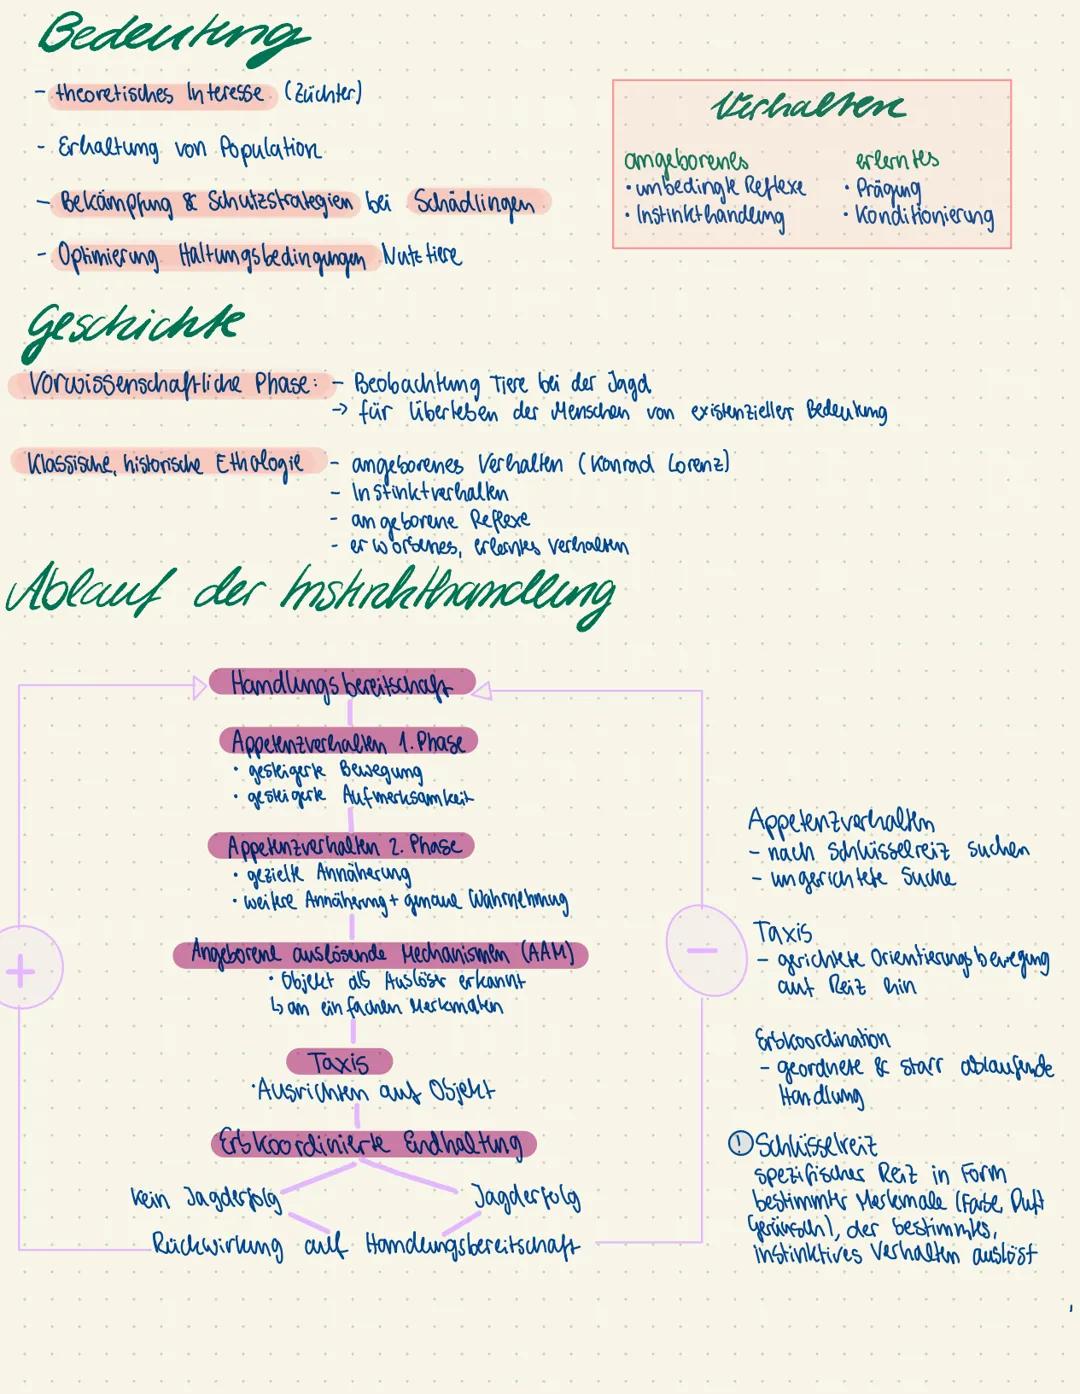 Bedeutung
- theoretisches Interesse (Züchter)
- Erhaltung von Population
- Bekämpfung & Schutzstrategien bei Schädlingen
- Optimierung Haltungsbedingungen Nutztiere
Verhalten
angeborenes
• unbedingte Reflexe
• Instinkthandlung
erlerntes
• Prägung
• Konditionierung
Geschichte
Vorwissenschaftliche Phase: - Beobachtung Tiere bei der Jagd
-> für Überleben der Menschen von existenzieller Bedeutung
Klassische, historische Ethologie - angeborenes Verhalten (Konrad Lorenz)
- Instinktverhalten
- angeborene Reflexe
- erworbenes, erlerntes Verhalten
Ablauf der Instinkthandlung
Handlungsbereitschaft
Appetenzverhalten 1. Phase
• gesteigerte Bewegung
• gesteigerte Aufmerksamkeit
Appetenzverhalten 2. Phase
• gezielte Annäherung
• weitere Annäherung + genaue Wahrnehmung
Angeborene auslösende Mechanismen (AAM)
• Objekt als Auslöser erkannt
↳ an einfachen Merkmalen
Taxis
• Ausrichten auf Objekt
Erbkoordinierte Endhaltung
kein Jagderfolg
Jagderfolg
Rückwirkung auf Handlungsbereitschaft
+
-
Appetenzverhalten
- nach Schlüsselreiz suchen
- ungerichtete Suche
Taxis
- gerichtete Orientierungsbewegung
auf Reiz hin
Erbkoordination
- geordnete & starr ablaufende
Handlung
! Schlüsselreiz
spezifischer Reiz in Form
bestimmter Merkmale (Farbe, Duft
Geräusch), der bestimmtes,
instinktives Verhalten auslöst